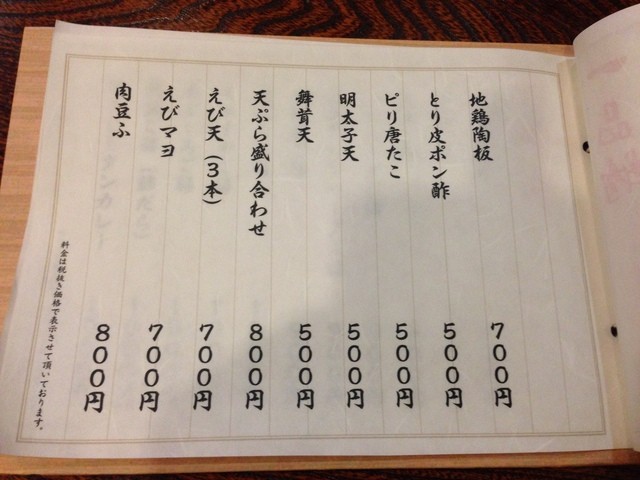 地鶏陶板 700円
とり皮ポン酢 500円
ピリ唐たこ 500円
明太子天 500円
舞茸天 500円
天ぷら盛り合わせ 800円
えび天(3本) 700円
えびマヨ 700円
肉豆ふ 800円
料金は税抜き価格で表示させて頂いております。